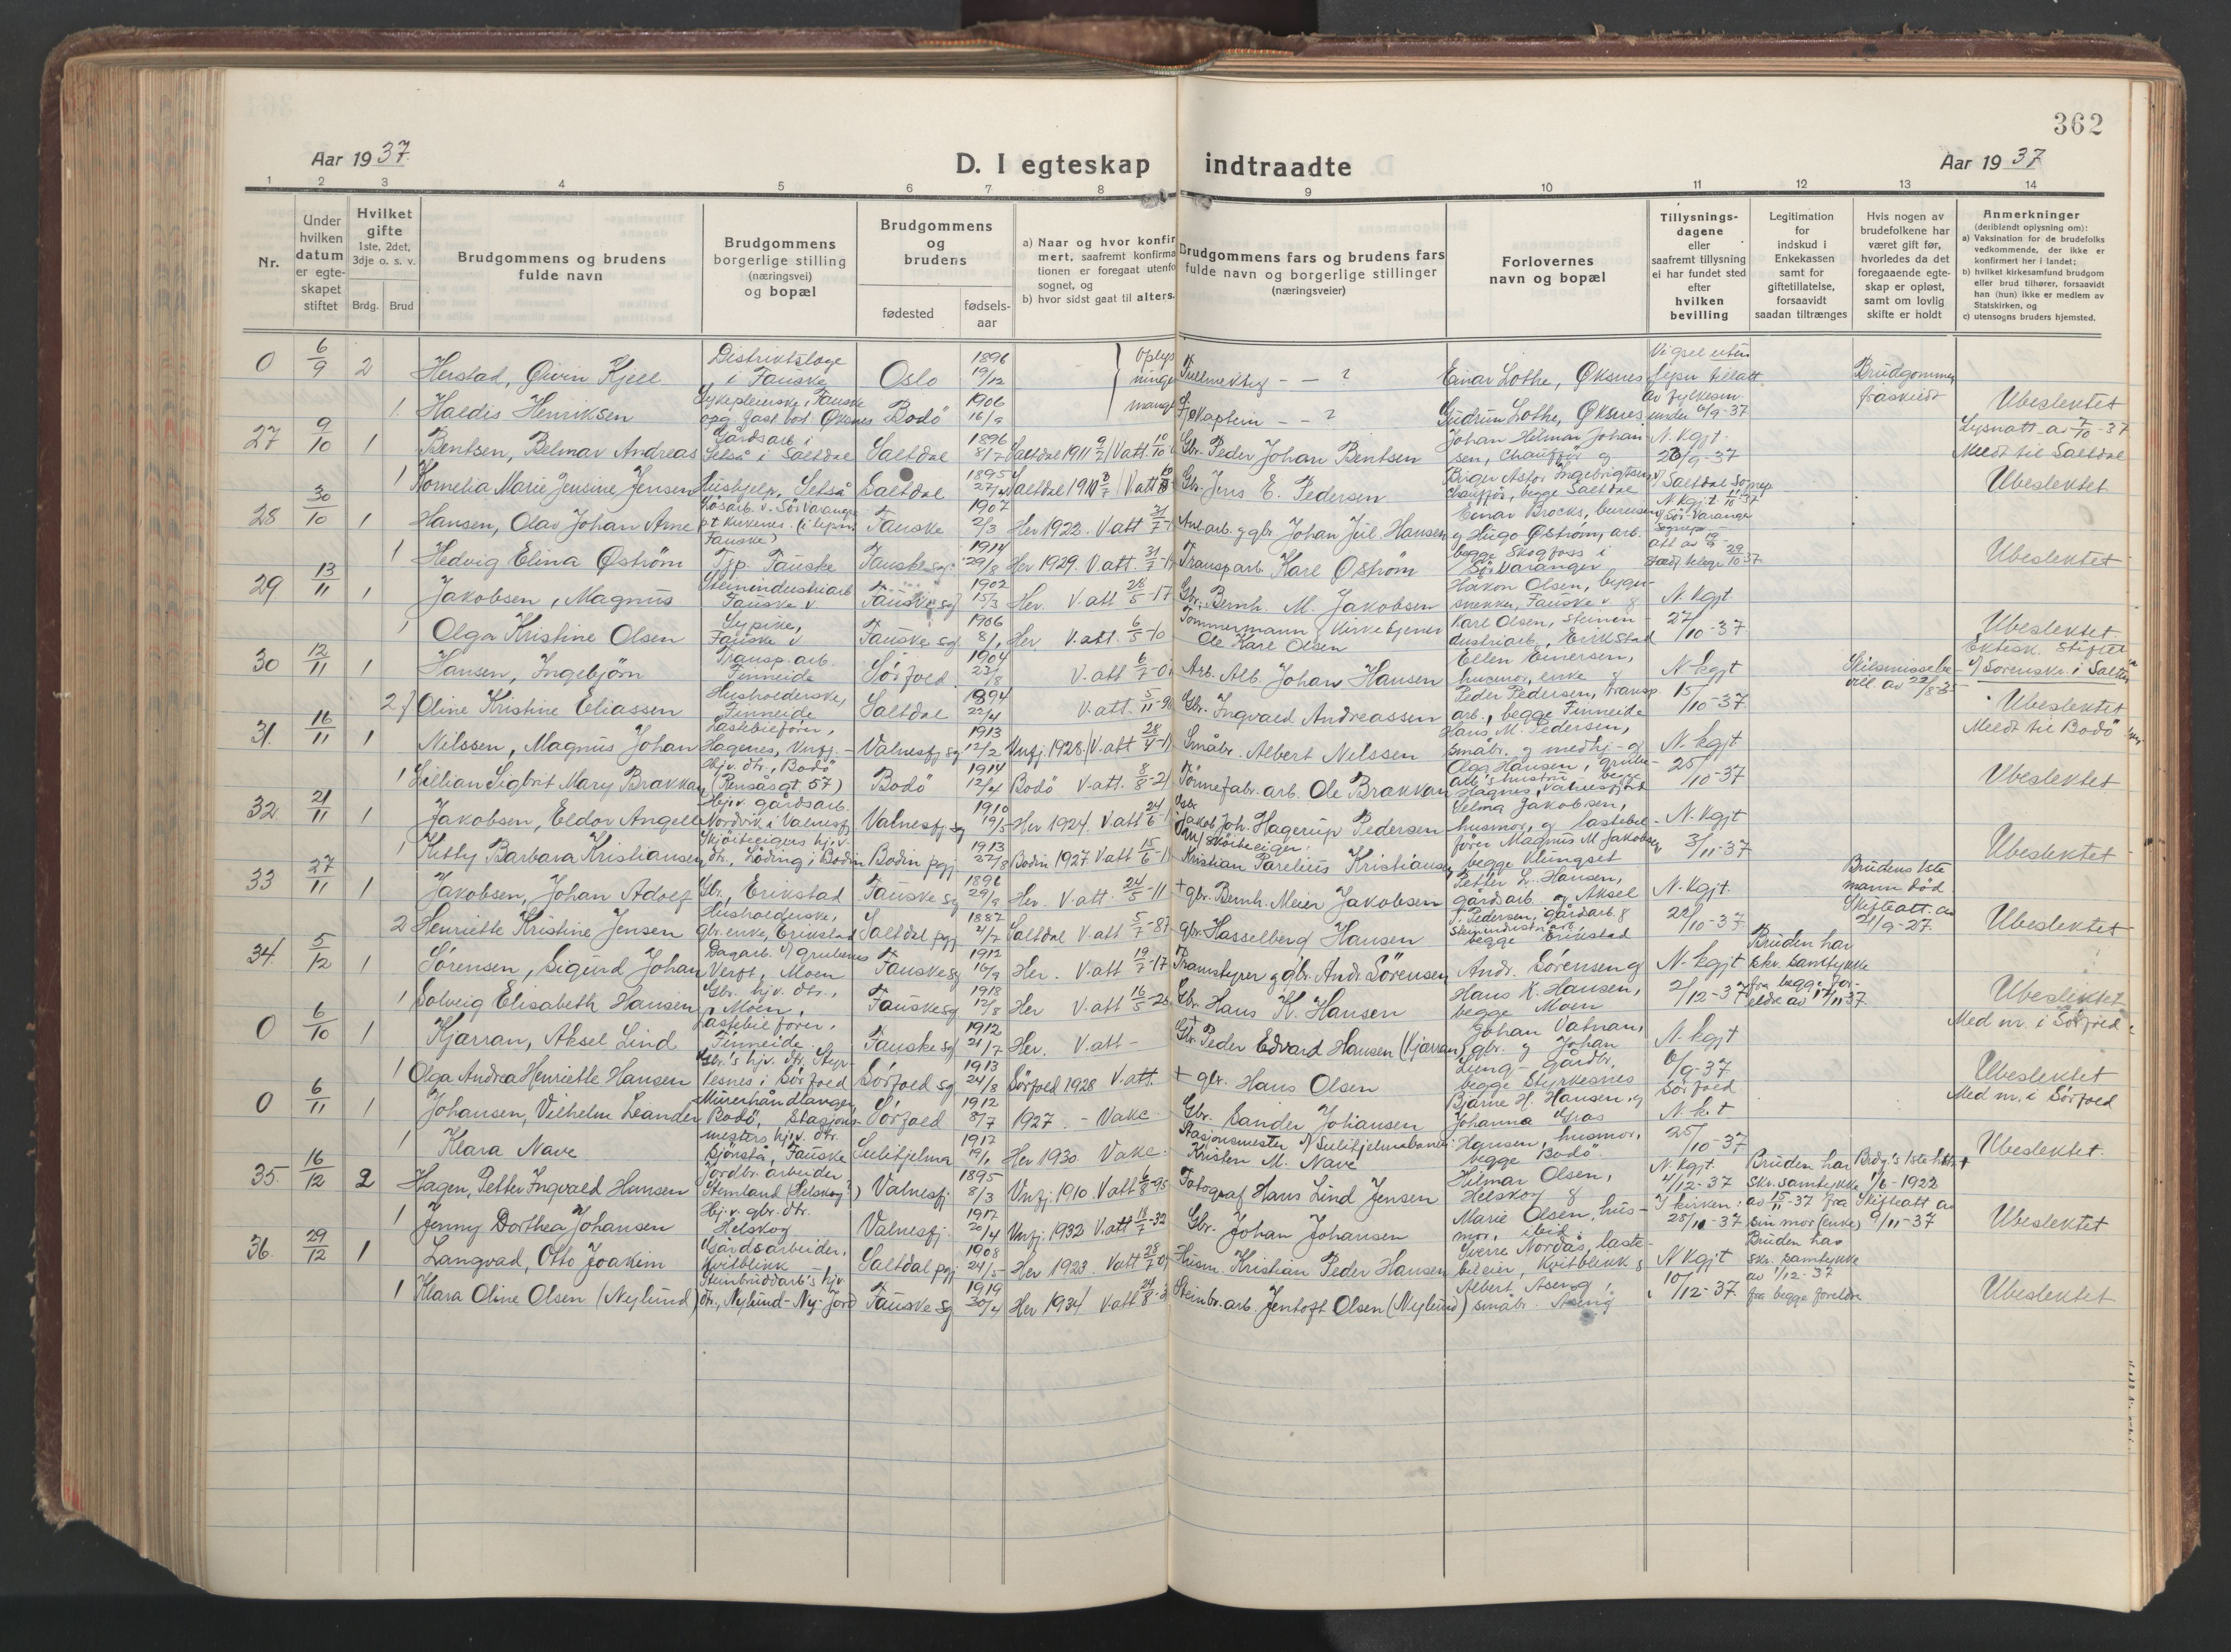 362
Aar 1937.
D. I egteskap indtraadte
Aar 1937
1 2 3 4 5 6 7 8 9 10 11 12 13 14
Nr.
Under hvilken datum er egteskapet stiftet
Hvilket gifte
1ste, 2det, 3dje o. s. v.
Brdg. Brud
Brudgommens og brudens fulde navn
Brudgommens borgerlige stilling (næringsvei) og bopæl
Brudgommens og brudens
fødested
fødselsaar
a) Naar og hvor konfirmert, saafremt konfirmationen er foregaat utenfor sognet, og
b) hvor sidst gaat til alters.
Brudgommens fars og brudens fars fulde navn og borgerlige stillinger (næringsveier)
Forlovernes navn og bopæl
Tillysningsdagene eller saafremt tillysning ei har fundet sted efter hvilken bevilling
Legitimation for indskud i Enkekassen samt for giftetillatelse, forsaavidt saadan tiltrænges
Hvis nogen av brudefolkene har været gift før, hvorledes da det foregaaende egteskap er opløst, samt om lovlig skifte er holdt
Anmerkninger
(deriblandt oplysning om):
a) Vaksination for de brudefolks vedkommende, der ikke er konfirmert her i landet;
b) hvilket kirkesamfund brudgom eller brud tilhører, forsaavidt han (hun) ikke er medlem av Statskirken, og
c) utensogns bruders hjemsted.
0 6/9 2 Herstad, Øivin Kjell Distriktslæge i Fauske Oslo 1896 19/12 Fullmektig - - ? Einar Lothe, Øksnes Vigsel uten lysn tillatt Brudgommen fraskildt
1 Haldis Henriksen Sykepleierske, Fauske opg. fast bot. Øksnes Bodö 1906 16/9 kaptein - - ? Gudrun Lothe, Øksnes av fylkesm. under 6/9-37 Ubeslektet
27 9/10 1 Bentsen, Belmar Andreas Gårdsarb i Setså i Saltdal Saltdal 1896 8/7 Saltdal 1911 Gbr. Peder Johan Bentsen Johan Hilmar Johansen, chauffør og N. kgjt. Lysnatt av 7/10-37 Meldt til Saltdal
1 Kornelia Marie Jensine Jensen Hushjelp, Setså Saltdal 1895 27/4 Gbr. Jens E. Pedersen Birger Astor Ingebrigtsen chauffør, begge Saltdal Saltdal Sognep. Ubeslektet
28 30/10 1 Hansen, Olav Johan Arne p.t. Kirkenes Fauske 1907 2/3 Her 1922. V.att 31/7 Anl.arb. g gbr Johan Jul Hansen Einar Brocks, g Hugo Østrøm, arb.
1 Hedvig Elina Østrøm Tjp. Fauske Fauske sg 1914 29/8 Her 1929. V.att. 31/7 Transp.arb. Karl Østrøm begge Skogfoss i Sørvaranger Ubeslektet
29 13/11 1 Jakobsen, Magnus Steinindustriarb Fauske v Fauske sg 1902 15/3 Her V.att 28/5-17 Gbr. Bernh. M. Jakobsen Håkon Olsen, bygnsnekker, Fauske v g N. kgjt
1 Olga Kristine Olsen Sypike, Fauske v Fauske sg 1906 8/1 Her V.att. 6/5-10 Tømmermann g kirketjener Ole Karl Olsen Karl Olsen, steinindustriarb., Erikstad 27/10-37 Ubeslektet.
30 12/11 1 Hansen, Ingebjörn Transp.arb. Finneide Sörfold 1904 V.att 6/7 Arb. Alb. Johan Hansen Ellen Einersen, husmor, enke g N. kgjt Skilsmissebevill. av 22/8-35 Ektesk. stiftet v/ Sorenskr. i Salten
2 Oline Kristine Eliassen Husholderske, Finneide Saltdal 1894 22/4 V.att. Gbr. Ingvald Andreassen Peder Pedersen, transp. arb., begge Finneide 15/10-37 Ubeslektet
31. 16/11 1 Nilssen, Magnus Johan Lastebilfører, Hagenes, Vnfj. Valnesfj sg 1913 12/2 Vnfj. 1928. V.att 28/4 Småbr. Albert Nilssen Hans M. Pedersen, småbr. g medhj. g N. kgjt Meldt til Bodö
1 Lillian Sigbrit Mary Brakkan Hjv. dtr., Bodö (Rensåsgt 57) Bodö 1914 12/4 Bodö V.att. 8/8-21 Tønnefabr.arb. Ole Brakkan Olga Hansen, grubearb's hustru begge Hagnes, Valnesfjord 25/10-37 Ubeslektet
32 21/11 1 Jakobsen, Eldor Angell Hjv. gårdsarb. Nordvik i Valnesfj. Valnesfj sg 1910 19/5 Her 1924. V.att 24/6 Jakob Joh. Hagerup Pedersen Selma Jakobsen, husmor, og lastebil- N. kgjt
1 Kitty Barbara Kristiansen Skjöiteeigers hjv. dtr., Löding i Bodin Bodin pgj 1913 22/8 Bodin 1927 V.att 15/6 Skøiteeiger Kristian Parelius Kristiansen fører Magnus M Jakobsen begge Klungset 3/11-37 Ubeslektet
33 27/11 1 Jakobsen, Johan Adolf Gbr., Erikstad Fauske sg 1896 29/9 Her. V.att 24/5-11 + gbr. Bernh. Meier Jakobsen Petter L. Hansen, gårdsarb. og Aksel N. kgjt. Brudens 1ste mann död.
2 Henriette Kristine Jensen Husholderske, gbr.enke, Erikstad Saltdal pgj 1887 2/7 Saltdal V.att 5/7-87 gbr. Hasselberg Hansen J. Pedersen, gårdarb. g begge Erikstad 22/10-37 Skifteatt. av 21/9-27. Ubeslektet
34. 5/12 1 Sörensen, Sigurd Johan Dagarb. v/ grubenes Verft, Moen Fauske sg 1912 16/9 Her. V.att 19/7-17 Pramstyrer g gbr. Andr. Sörensen Andr. Sörensen g N. kgjt Bruden har skr. samtykke
1 Solveig Elisabeth Hansen Gbr. hjv. dtr., Moen, Fauske sg 1918 12/8 Her V.att 16/5 Gbr. Hans K. Hansen Hans K. Hansen, begge Moen 2/12-37 fra begge foreldre av 17/11 37 Ubeslektet
0 6/10 1 Kjærran, Aksel Lind Lastebilfører, Finneide. Fauske sg 1912 21/7 Her. V.att - Gbr. Peder Edvard Hansen (Kjærran) Johan Vatnan, gbr. g Johan N. kgjt Med nr. i Sörfold
1 Olga Andrea Henriette Hansen Gbr.'s hjv. dtr. Styrkesnes i Sörfold Sörfold sg 1913 24/8 Sörfold 1928 V.att. + gbr. Hans Olsen Ljung - gårdbr., begge Styrkesnes 6/9-37 Sörfold Ubeslektet
0 6/11 1 Johansen, Vilhelm Leander Murerhåndlanger Bodö, Stasjons- Sörfold 1912 8/7 1927. - Vakc. Gbr. Sander Johansen Bjarne H. Hansen, g Johanna N. k. t Med nr. i Sörfold
1 Klara Nave mesters hjv. dtr. Sjönstå, Fauske Sulitjelma 1912 Her 1930 Vakc. Stasjonsmester v/ Sulitjelmabanen Kristen M. Nave Hansen, husmor, begge Bodö 25/10-37 Ubeslektet.
35. 16/12 2 Hagen, Petter Ingvald Hansen Jordbr. arbeider Stemland (Helskog) Valnesfj. 1895 8/3 Vnfj. 1910. V.att 6/8-95 Fotograf Hans Lind Jensen Hilmar Olsen, Helskog g N. kgjt. 4/12-37 Bruden har skr. samtykke Brdg.'s 1ste hustr + 1/6-1922
1 Jenny Dorthea Johansen Hjv. gbr. dtr. Helskog Valnesfj. 1917 20/4 Vnfj. 1932 V.att 18/7-32 Gbr. Johan Johansen Marie Olsen, husmor, ibid. I kirken: 28/11-37 av 15/11-37 fra sin mor (enke) Skifteatt av 9/11-37 Ubeslektet
36. 29/12 1 Langvad, Otto Joakim Gårdsarbeider, Kvitblikk Saltdal pgj. 1908 24/5 Her 1923. V.att 28/7 Husm. Kristian Peder Hansen Sverre Nordås, lastebileier, Kvitblikk g N kgjt Bruden har skr. samtykke av 1/12-37
1 Klara Oline Olsen (Nylund) Steinbruddarb's hjv dtr., Nylund-Ny-Jord Fauske sg 1919 30/4 Her 1934 V.att 24/8 Steinbr.arb. Jentoft Olsen (Nylund) Albert Aseng, småbr. Aseng 10/12-37 fra begge foreldre Ubeslektet